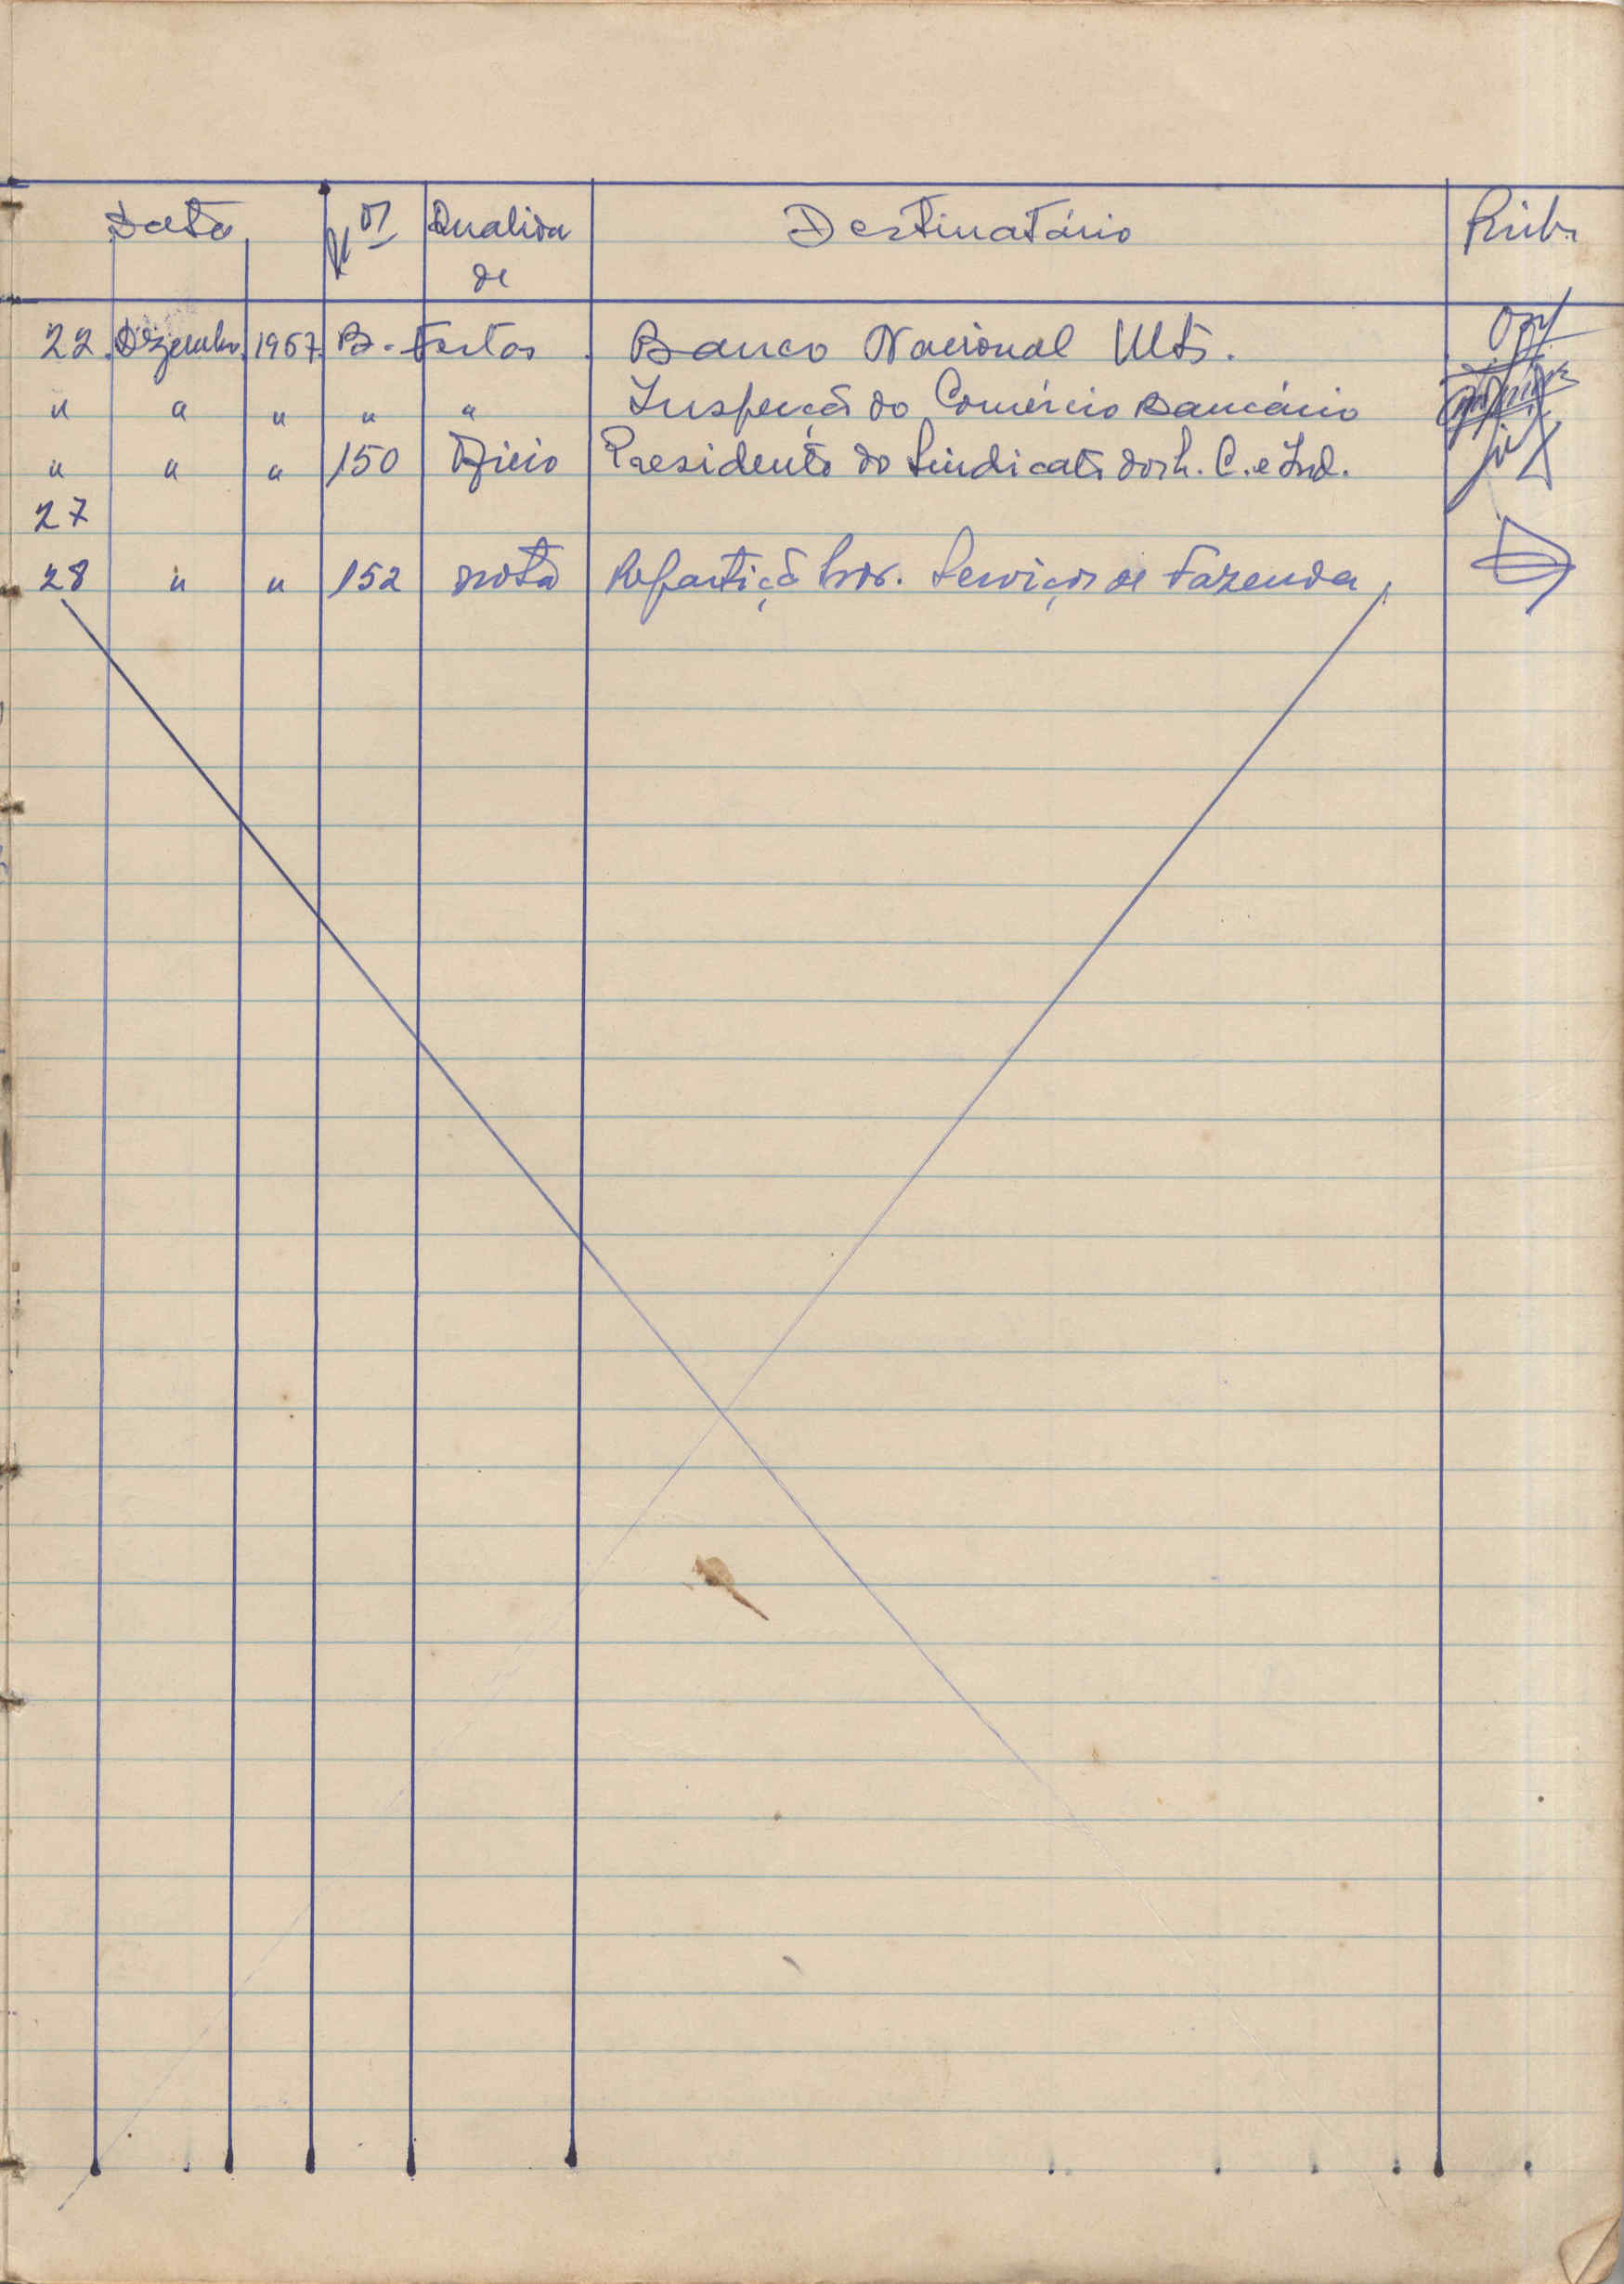 Data Nº Qualida Destinatário Rúbr.
de
22 Dezembro 1967 B. Festas Banco Nacional Ult.
" " " " " Inspecção do Comércio Bancário
" " " 150 Ofício Presidente do Sindicato dos C. e Ind.
27
28 " " 152 nota Repartição Serviços de Fazenda